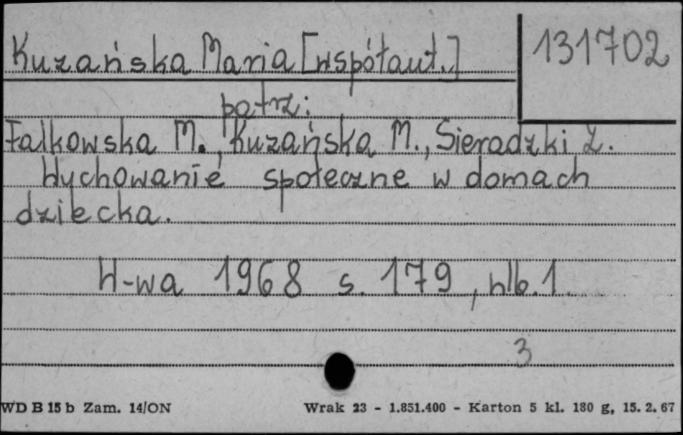 Kuzańska Maria [współaut.]
131702
patrz:
Falkowska M., Kuzańska M., Sieradzki Z.
Wychowanie społeczne w domach
dziecka.
W-wa 1968 s. 179, nlb. 1
3
WD B 15 b Zam. 14/ON
Wrak 23 - 1.851.400 - Karton 5 kl. 180 g, 15. 2. 67